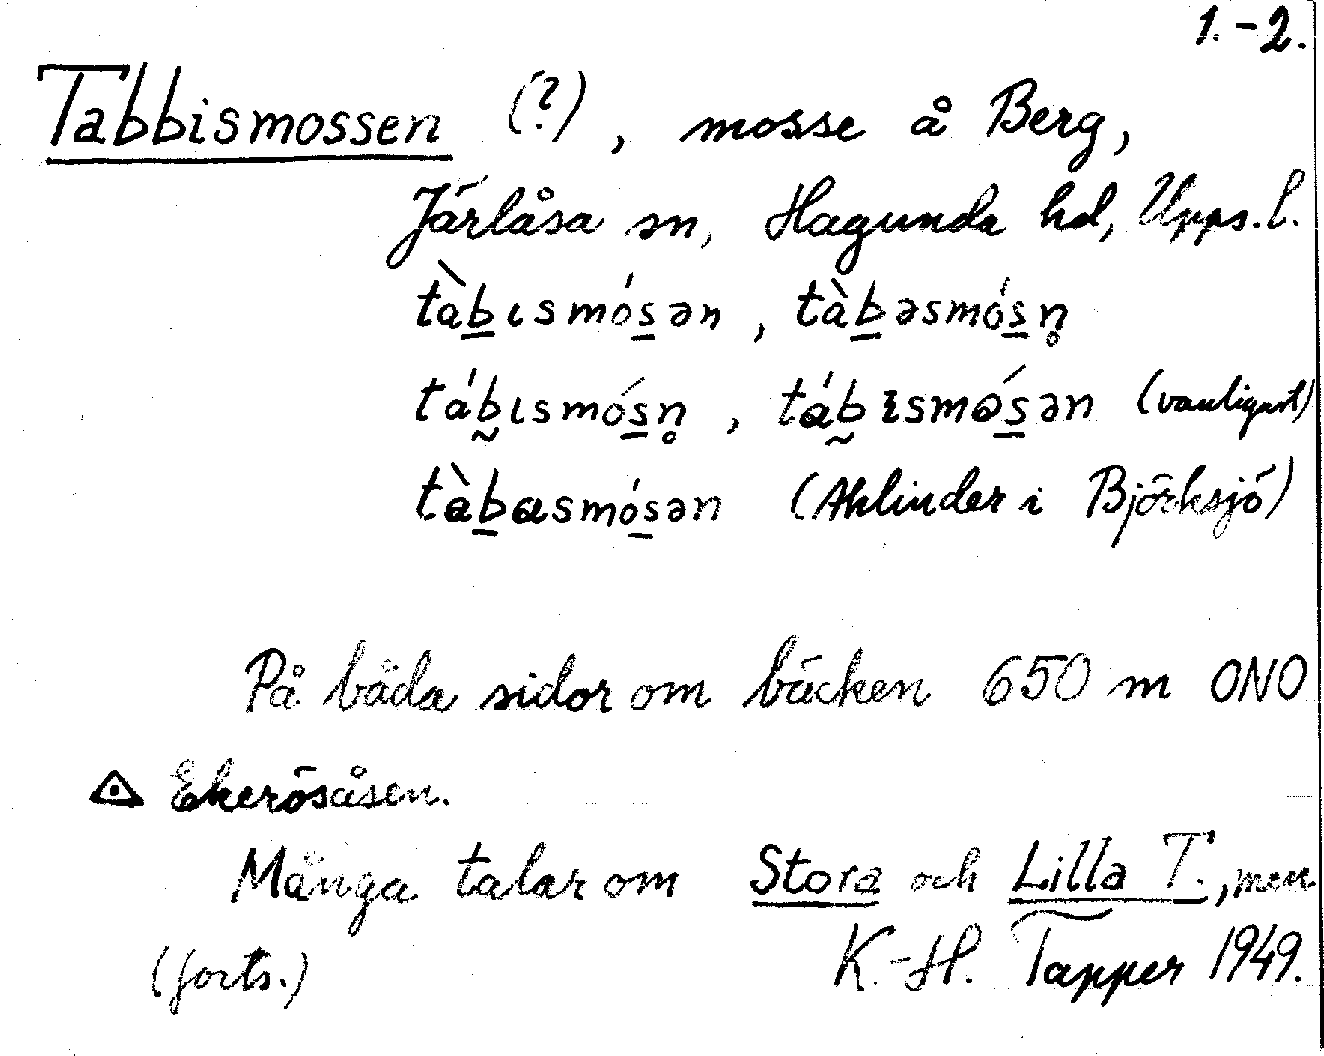 1.-2.
Tabbismossen (?), mosse å Berg,
Järlåsa sn, Hagunda hd, Upps.l.
tàb̲ısmós̲ən, tàb̲əsmós̲n̥
táb̰ısmós̲n̥, táb̰ısmós̲ən (vanligast)
tàb̲asmós̲ən (Ahlinder i Björksjö)
På båda sidor om bäcken 650 m ONO
◬ Ekerösåsen.
Många talar om Stora och Lilla T., men
(forts.) K.-H. Tapper 1949.